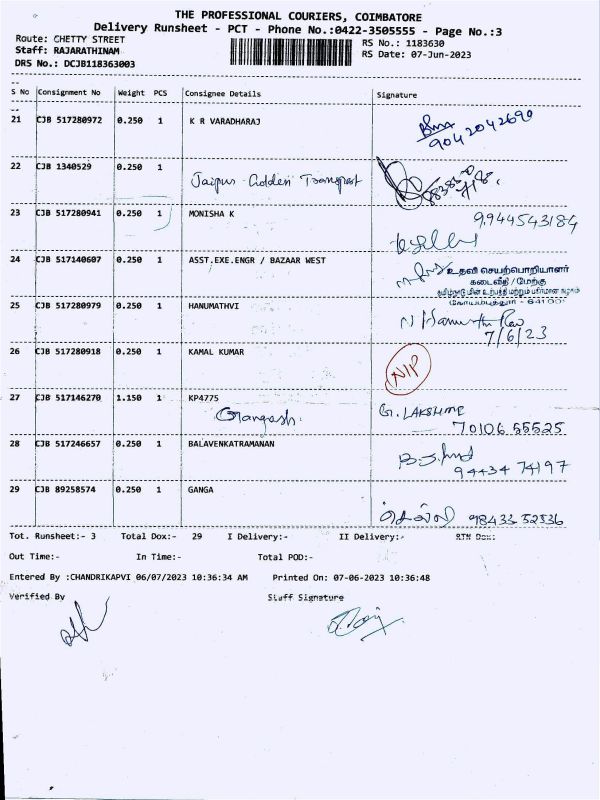 THE PROFESSIONAL COURIERS, COIMBATORE
Delivery Runsheet - PCT - Phone No.:0422-3505555 - Page No.:3
Route: CHETTY STREET
RS No.: 1183630
Staff: RAJARATHINAM
RS Date: 07-Jun-2023
DRS No.: DCJB118363003
S No Consignment No Weight PCS Consignee Details Signature
21 CJB 517280972 0.250 1 K R VARADHARAJ
9042042690
22 CJB 1340529 0.250 1
Jaipur Golden Transport
23 CJB 517280941 0.250 1 MONISHA K 9944543184
24 CJB 517140607 0.250 1 ASST.EXE.ENGR / BAZAAR WEST
உதவி செயற்பொறியாளர்
கடைவீதி / மேற்கு
தமிழ்நாடு மின் உற்பத்தி மற்றும் பகிர்மான கழகம்
25 CJB 517280979 0.250 1 HANUMATHVI
7/6/23
26 CJB 517280918 0.250 1 KAMAL KUMAR
N/P
27 CJB 517146270 1.150 1 KP4775
G. LAKSHMI
70106 55525
28 CJB 517246657 0.250 1 BALAVENKATRAMANAN
94434 74197
29 CJB 89258574 0.250 1 GANGA
செல்வி 98433 52536
Tot. Runsheet:- 3 Total Dox:- 29 I Delivery:- II Delivery:- RTN Dox:
Out Time:- In Time:- Total POD:-
Entered By :CHANDRIKAPVI 06/07/2023 10:36:34 AM Printed On: 07-06-2023 10:36:48
Verified By Staff Signature